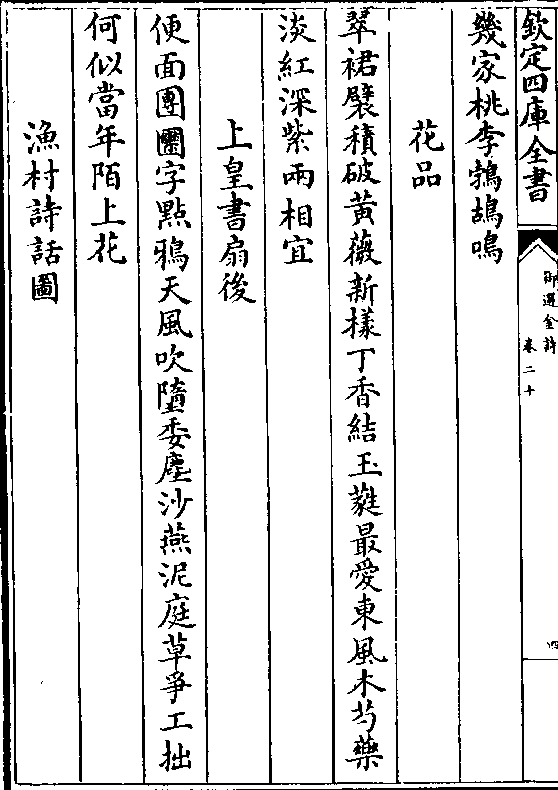 欽定四庫全書
御選金詩
卷二十
四
幾家桃李鵓鴣鳴
花品
翠裙襞積破黄薇新様丁香結玉蕤最愛東風木芍藥
淡紅深紫兩相宜
上皇書扇後
便面團團字點鴉天風吹墮委塵沙燕泥庭草爭工拙
何似當年陌上花
漁村詩話圖